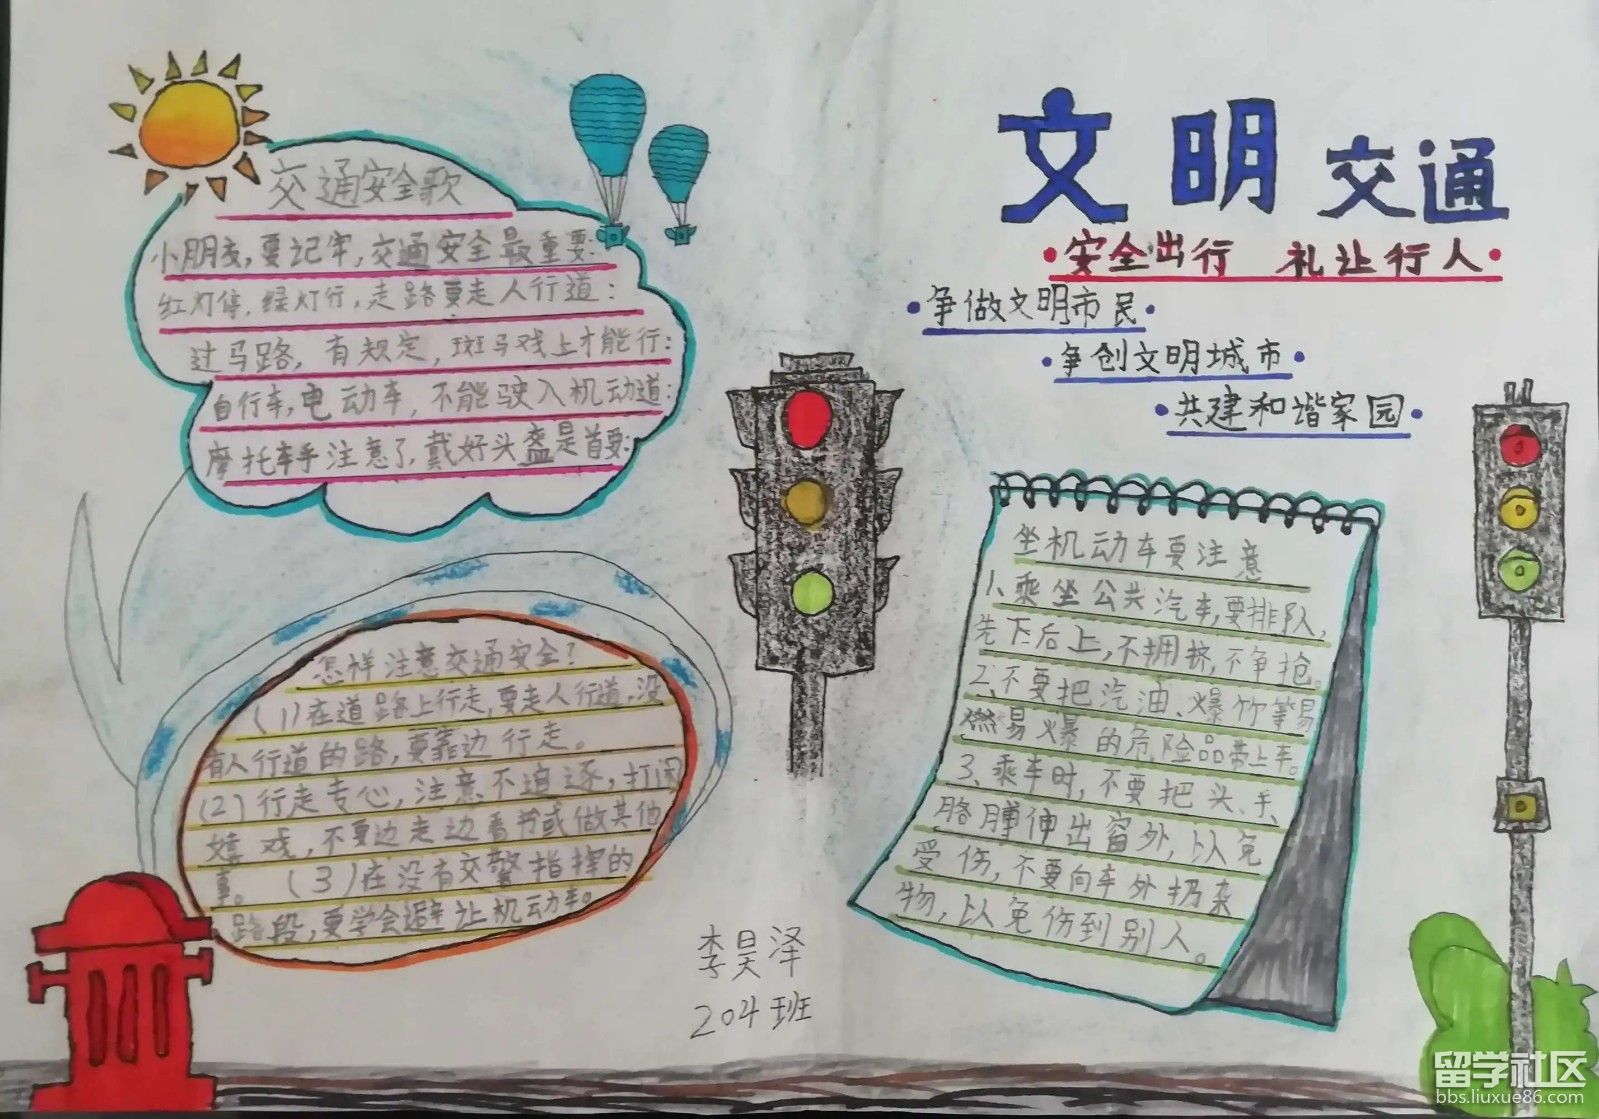 文明交通
安全出行 礼让行人
争做文明市民
争创文明城市
共建和谐家园
交通安全歌
小朋友,要记牢,交通安全最重要:
红灯停,绿灯行,走路要走人行道:
过马路,有规定,斑马戏上才能行:
自行车,电动车,不能驶入机动道:
摩托车手注意了,戴好头盔是首要:
怎样注意交通安全?
(1)在道路上行走,要走人行道,没
有人行道的路,要靠边行走。
(2)行走专心,注意不追逐,打闹
嬉戏,不要边走边看书或做其他
事。(3)在没有交警指挥的
路段,要学会避让机动车。
坐机动车要注意
1、乘坐公共汽车,要排队,
先下后上,不拥挤,不争抢。
2、不要把汽油、爆竹等易
燃易爆的危险品带上车。
3、乘车时,不要把头、手、
胳膊伸出窗外,以免
受伤,不要向车外扔杂
物,以免伤到别人。
李昊泽
204班
留学社区
bbs.liuxue86.com